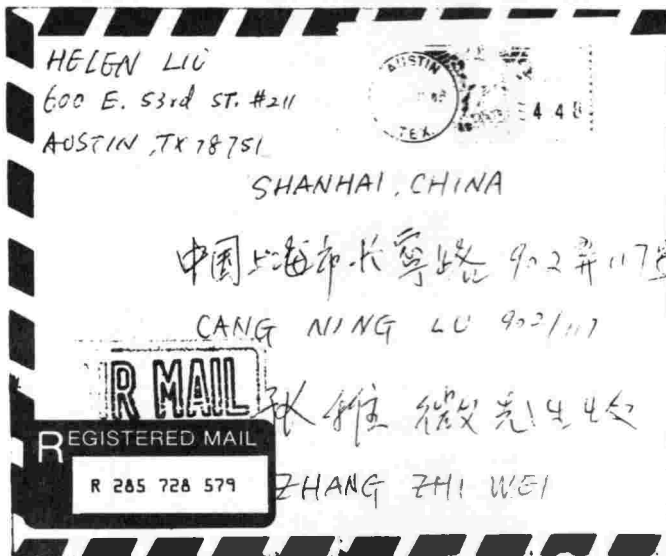 HELEN LIU
600 E. 53rd ST. #211
AUSTIN, TX 78751
AUSTIN
TEX.
4.40
SHANHAI, CHINA
中国上海市长寧路 902弄117
CANG NING LU 902/117
R MAIL
先生收
REGISTERED MAIL
R 285 728 579
ZHANG ZHI WEI